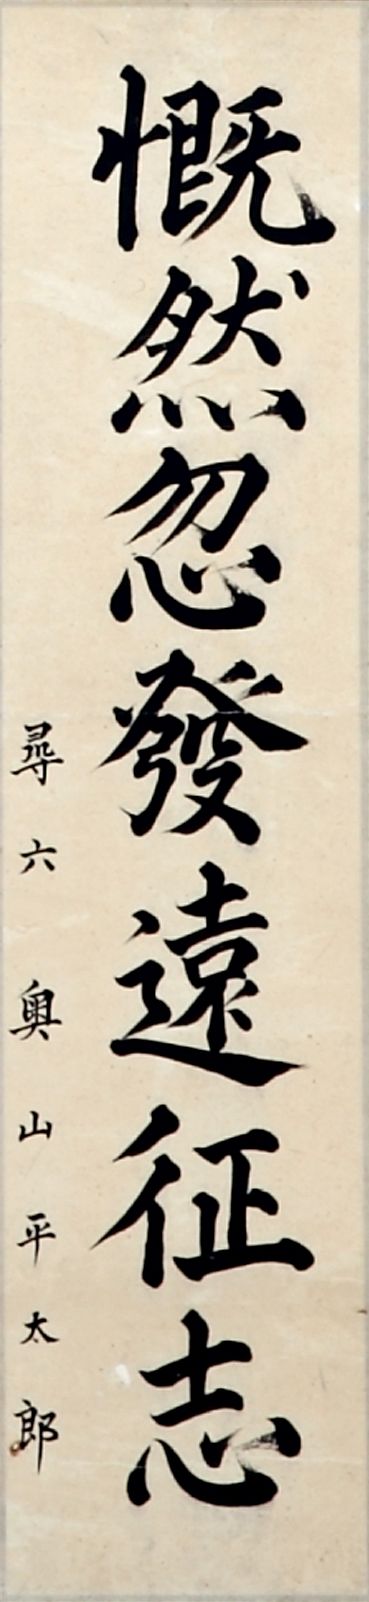 慨然忽發遠征志
尋六 奥山平太郎